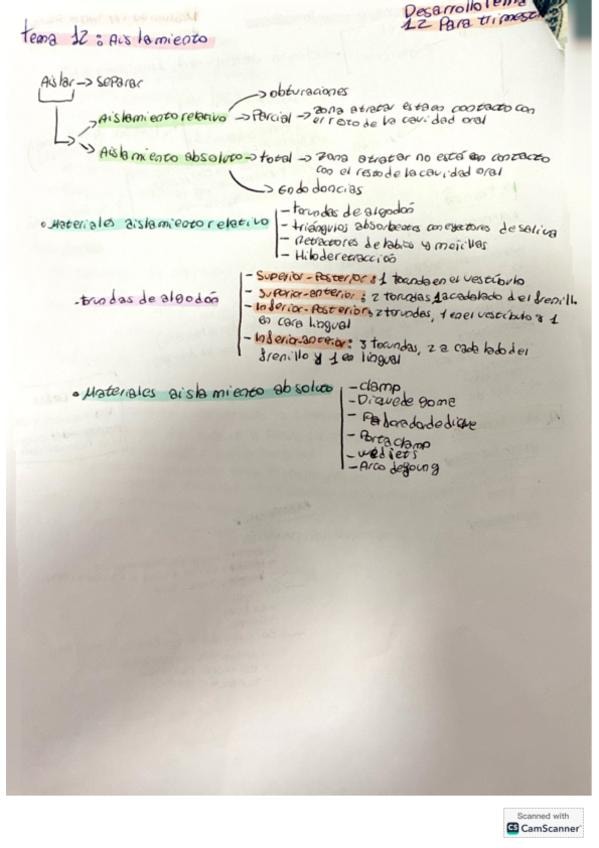 Desarrollo Tema
12 Para trimest
tema 12: Aislamiento
Aislar → separar
→ obturaciones
→ Aislamiento relativo → Parcial → zona a tratar está en contacto con
el resto de la cavidad oral
→ Aislamiento absoluto → total → zona a tratar no está en contacto
con el resto de la cavidad oral
→ Endodoncias
• Materiales aislamiento relativo
- torundas de algodón
- triángulos absorbentes con eyectores de saliva
- Retractores de labios y mejillas
- Hilo de retracción
- torundas de algodón
- Superior-Posterior: 1 torunda en el vestíbulo
- Superior-anterior: 2 torundas 1 a cada lado del frenillo
- Inferior-Posterior: 2 torundas, 1 en el vestíbulo y 1
en cara lingual
- Inferior-anterior: 3 torundas, 2 a cada lado del
frenillo y 1 en lingual
• Materiales aislamiento absoluto
- clamp
- Dique de goma
- Perforador de dique
- Porta clamp
- wedjets
- Arco de young
Scanned with
CS CamScanner